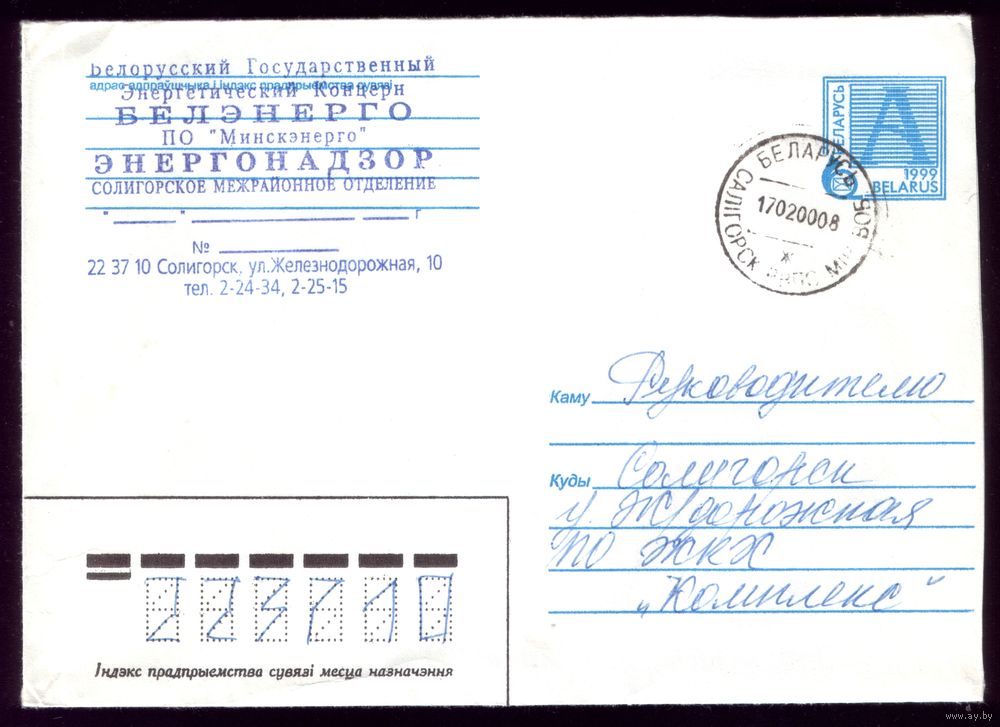 Белорусский Государственный
адрас адпраўшчыка і індэкс прадпрыемства сувязі
Энергетический Концерн
БЕЛЭНЕРГО
ПО "Минскэнерго"
ЭНЕРГОНАДЗОР
СОЛИГОРСКОЕ МЕЖРАЙОННОЕ ОТДЕЛЕНИЕ
"______" ____________ ____ г
№ ____________
22 37 10 Солигорск, ул.Железнодорожная, 10
тел. 2-24-34, 2-25-15
БЕЛАРУСЬ
А
1999
BELARUS
БЕЛАРУСЬ
САЛІГОРСК
17020008
Каму Руководителю
Куды Солигорск
у. Ж/дорожная
ПО ЖКХ
„Комплекс"
223710
Індэкс прадпрыемства сувязі месца назначэння
www.ay.by